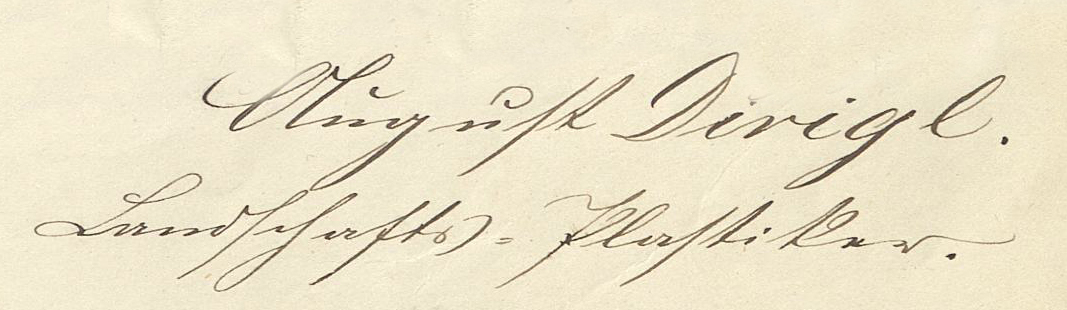 August Dirigl.
Landschafts=Plastiker.